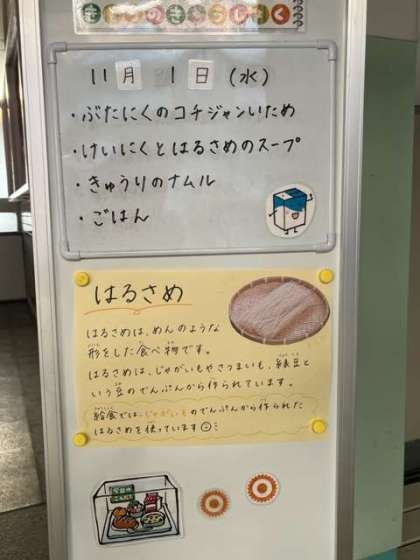 きょうのきゅうしょく
11月 1日(水)
・ぶたにくのコチジャンいため
・けいにくとはるさめのスープ
・きゅうりのナムル
・ごはん
はるさめ
はるさめは、めんのような
形をした食べ物です。
はるさめは、じゃがいもやさつまいも、緑豆と
いう豆のでんぷんから作られています。
給食では、じゃがいものでんぷんから作られた
はるさめを使っています